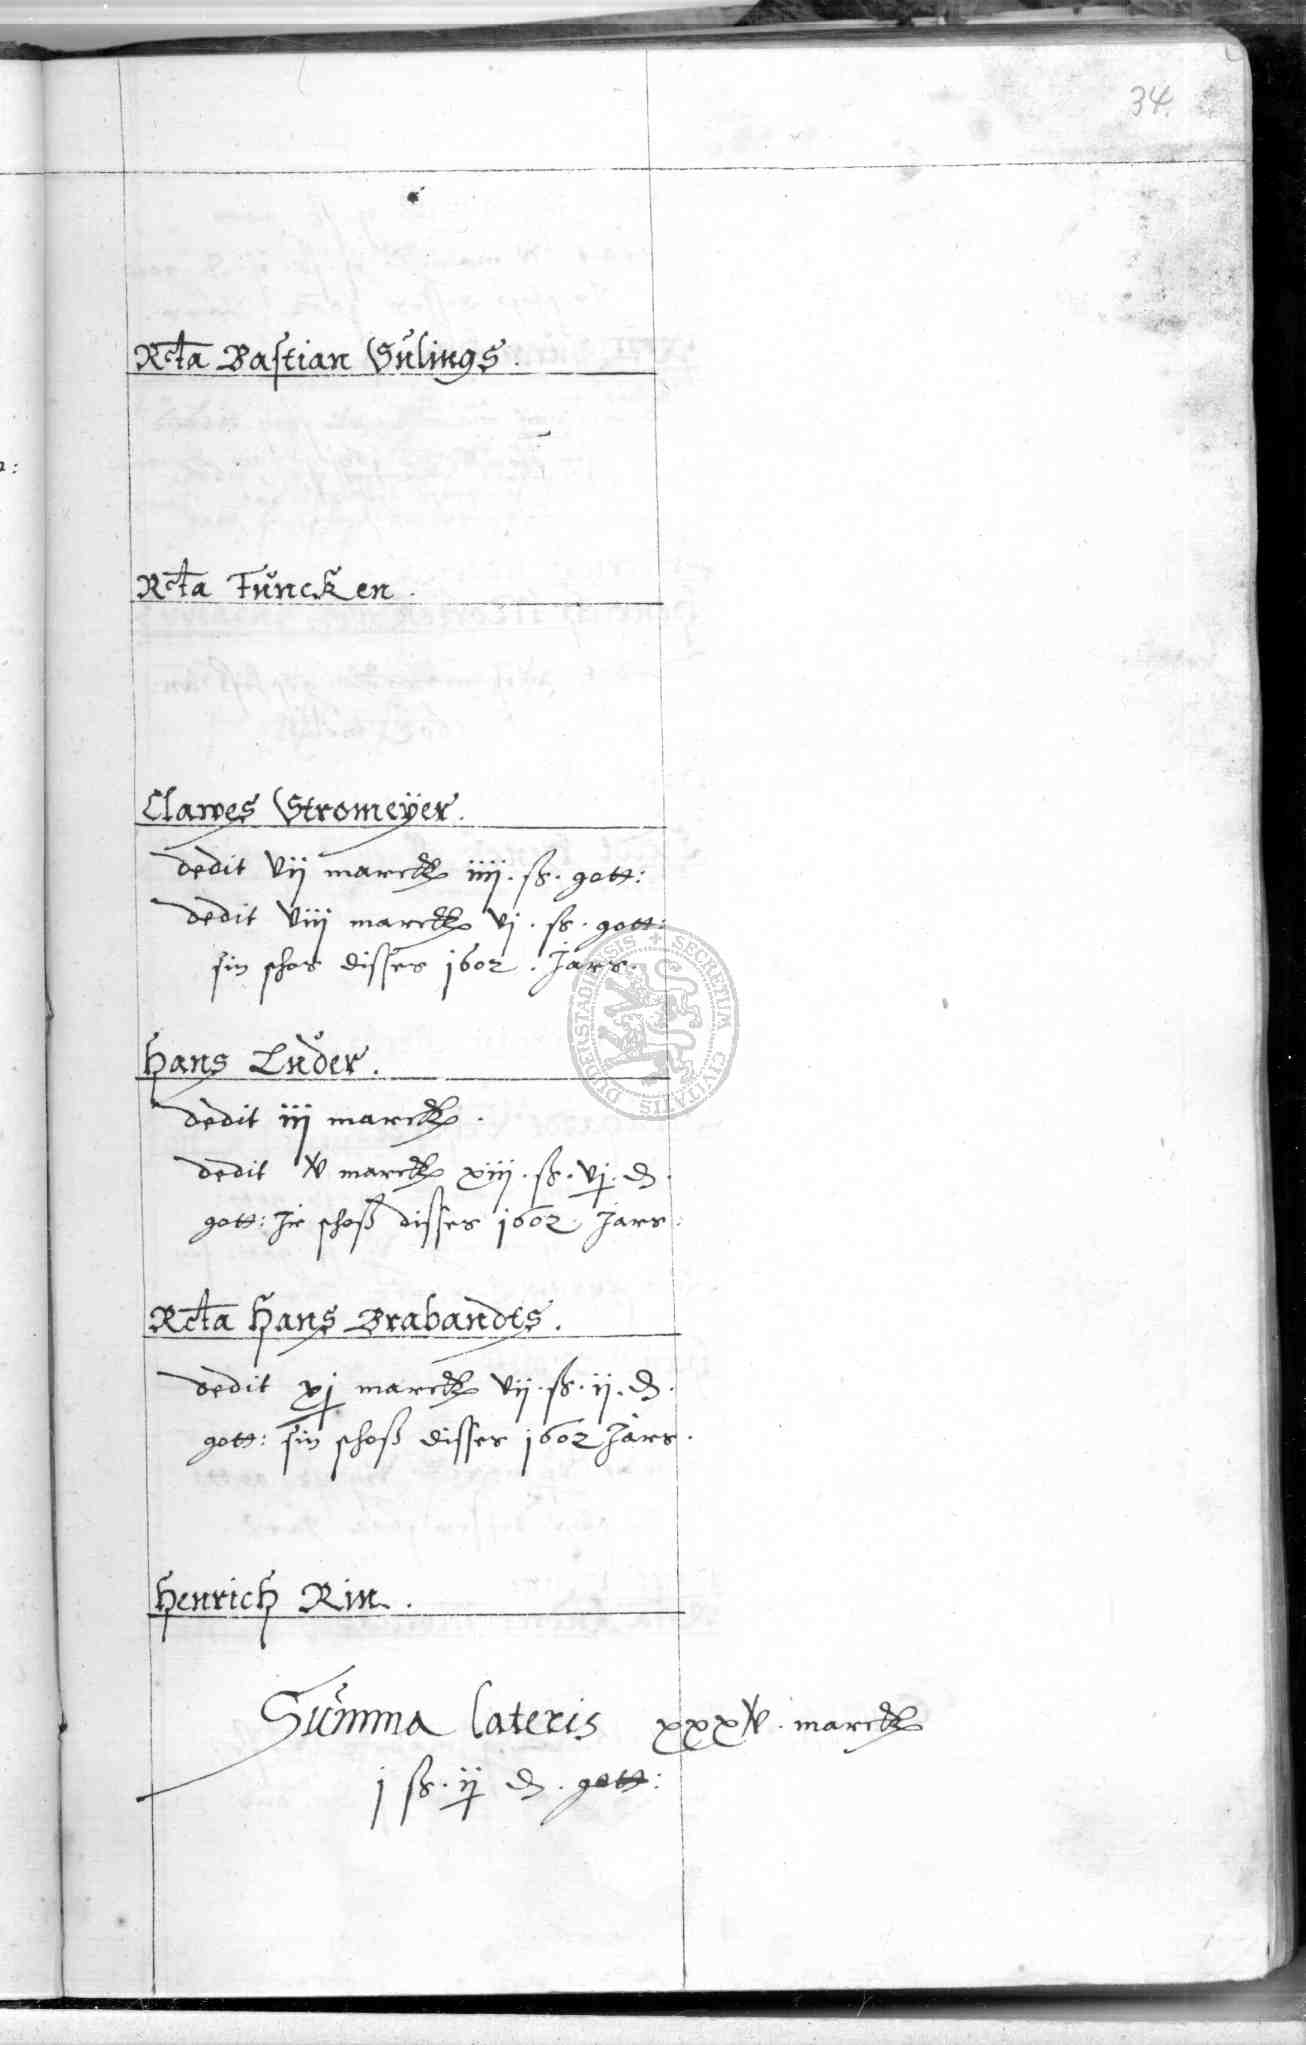 34.
Rcta Bastian Sŭlings.
Rcta Fŭncken.
Clawes Stromeÿer.
dedit vii marck iiij. ß. gott:
dedit viij marck vj. ß. gott:
sin schos disses 1602. Jars.
Hans Lŭder.
dedit iij marck.
dedit v marck xiij. ß. vj. ₰.
gott: Ir schoß disses 1602. Jars:
Rcta Hans Brabandts.
dedit xj marck vij. ß. ij. ₰.
gott: sin schoß disses 1602 Jars.
Henrich Rin.
Sŭmma lateris xxxv. marck
j ß. ij ₰. gott:
SECRETUM CIVITATIS DUDERSTADIENSIS